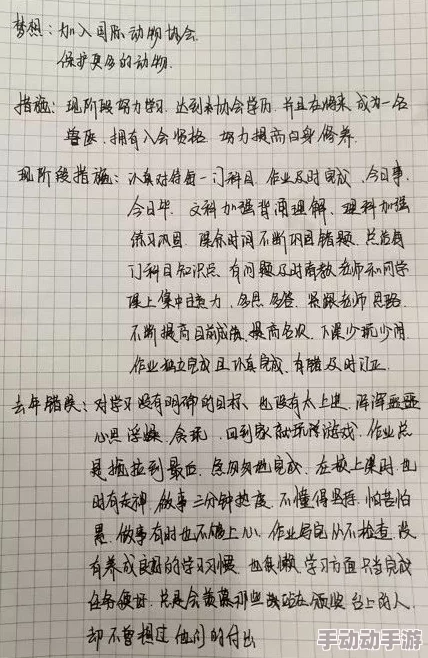 梦想：加入国际动物协会
保护更多的动物.
措施：现阶段努力学习. 达到本协会学历. 并且在将来成为一名
兽医. 拥有入会资格. 努力提高自身修养.
现阶段措施：认真对待每一门科目. 作业及时完成. 今日事.
今日毕. 文科加强背诵理解. 理科加强
练习巩固. 课余时间不断巩固错题. 总结每
门科目知识点. 有问题及时请教老师和同学
课上集中注意力. 多思多答. 紧跟老师思路.
不断提高目前成绩. 提高名次. 下课少玩少闹.
作业独立完成且认真完成. 有错及时订正.
去年错误：对学习没有明确的目标、也没有太上进. 浑浑噩噩
心思浮燥. 贪玩. 回到家就玩游戏. 作业总
是拖拉到最后. 急匆匆地完成. 在校上课时. 也
时有走神. 做事三分钟热度. 不懂得坚持. 怕苦怕
累. 做事有时也不够上心. 作业写完从不检查. 没
有养成良好的学习习惯. 也很懒. 学习方面只当完成
任务便好. 总是会羡慕那些站在颁奖台上的人.
却不曾想过他们的付出
手动动手游